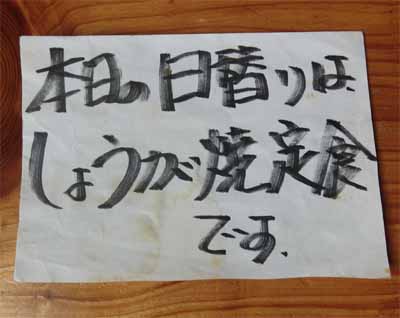 本日の日替りは、
しょうが焼定食
です。